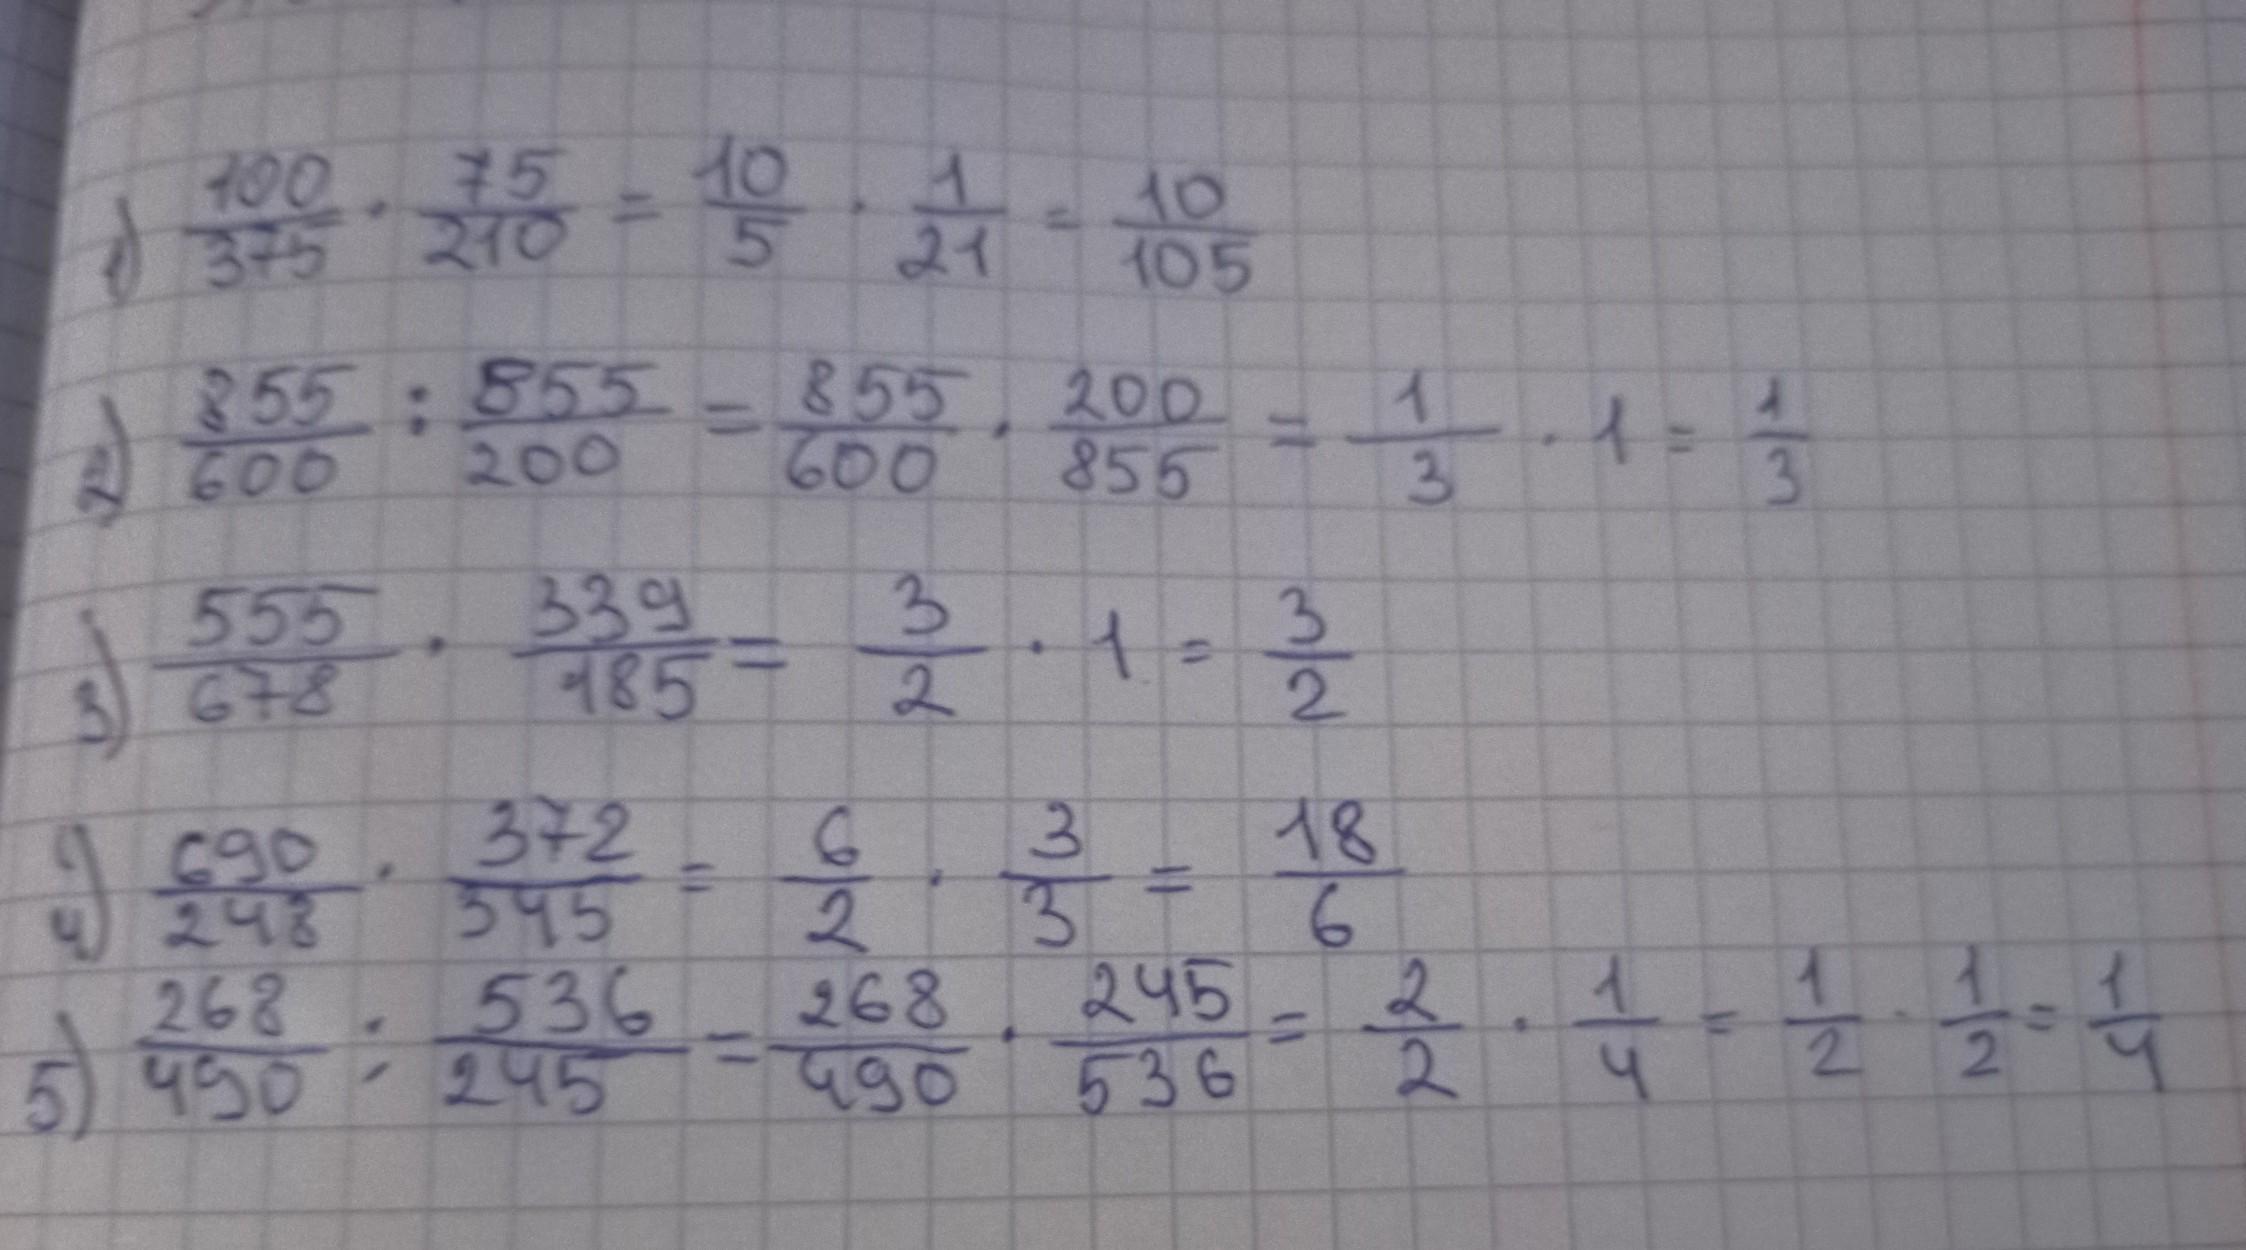 1) 100/375 · 75/210 = 10/5 · 1/21 = 10/105
2) 855/600 : 855/200 = 855/600 · 200/855 = 1/3 · 1 = 1/3
3) 555/678 · 339/185 = 3/2 · 1 = 3/2
4) 690/248 · 372/345 = 6/2 · 3/3 = 18/6
5) 268/490 : 536/245 = 268/490 · 245/536 = 2/2 · 1/4 = 1/2 · 1/2 = 1/4